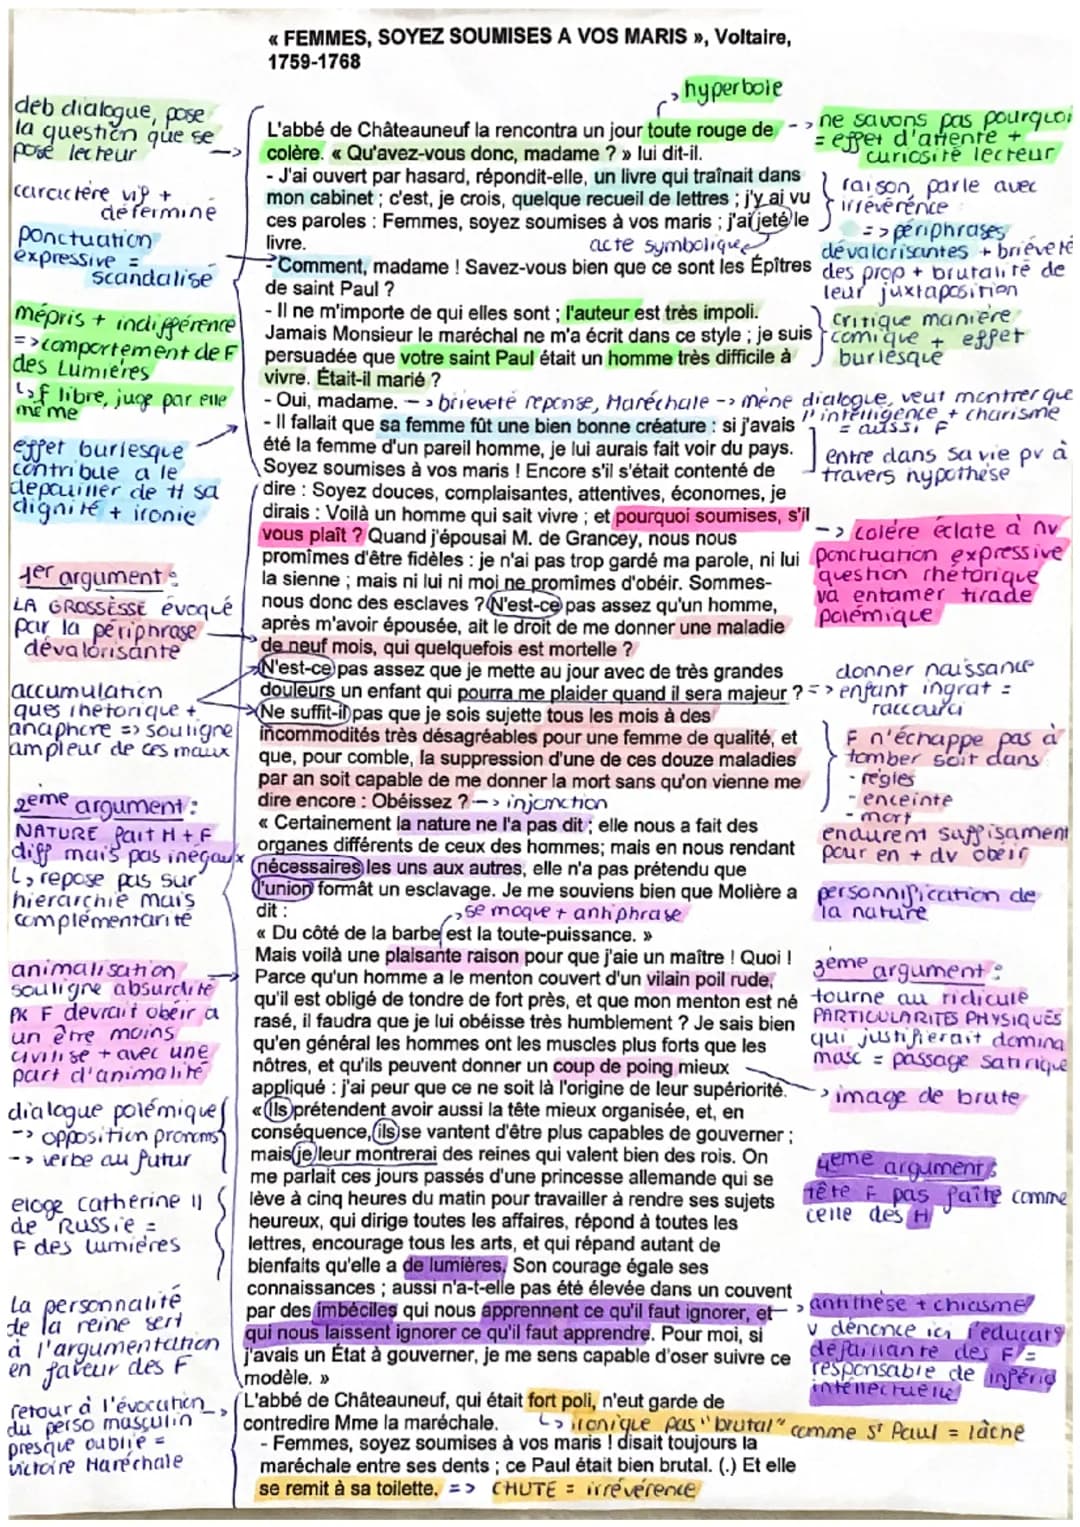 « FEMMES, SOYEZ SOUMISES A VOS MARIS », Voltaire,
1759-1768
hyperbole
déb dialogue, pose
la question que se
pose lecteur
caractère vif +
déterminé
ponctuation
expressive =
scandalisé
mépris + indifférence
=> comportement de F
des Lumières
↳ f libre, juge par elle
même
effet burlesque
contribue a le
dépouiller de tt sa
dignité + ironie
1er argument :
LA GROSSESSE évoqué
par la périphrase
dévalorisante
accumulation
ques rhétorique +
anaphore => souligne
ampleur de ces maux
2ème argument :
NATURE fait H + F
diff mais pas inégaux
↳ repose pas sur
hiérarchie mais
complémentarité
animalisation
souligne absurdité
pk F devrait obéir a
un être moins
civilisé + avec une
part d'animalité
dialogue polémique
-> opposition pronoms
-> verbe au futur
eloge Catherine II
de Russie =
F des Lumières
La personnalité
de la reine sert
à l'argumentation
en faveur des F
retour à l'évocation
du perso masculin
presque oublié =
victoire Maréchale
L'abbé de Châteauneuf la rencontra un jour toute rouge de
colère. « Qu'avez-vous donc, madame ? » lui dit-il.
- J'ai ouvert par hasard, répondit-elle, un livre qui traînait dans
mon cabinet ; c'est, je crois, quelque recueil de lettres ; j'y ai vu
ces paroles : Femmes, soyez soumises à vos maris ; j'ai jeté le
livre.
acte symbolique
- Comment, madame ! Savez-vous bien que ce sont les Épîtres
de saint Paul ?
- Il ne m'importe de qui elles sont ; l'auteur est très impoli.
Jamais Monsieur le maréchal ne m'a écrit dans ce style ; je suis
persuadée que votre saint Paul était un homme très difficile à
vivre. Était-il marié ?
- Oui, madame. -> brieveté reponse, Maréchale -> mène dialogue, veut montrer que
l'intelligence + charisme
= aussi F
- Il fallait que sa femme fût une bien bonne créature : si j'avais
été la femme d'un pareil homme, je lui aurais fait voir du pays.
Soyez soumises à vos maris ! Encore s'il s'était contenté de
dire : Soyez douces, complaisantes, attentives, économes, je
dirais : Voilà un homme qui sait vivre ; et pourquoi soumises, s'il
vous plaît ? Quand j'épousai M. de Grancey, nous nous
promîmes d'être fidèles : je n'ai pas trop gardé ma parole, ni lui
la sienne ; mais ni lui ni moi ne promîmes d'obéir. Sommes-
nous donc des esclaves ? N'est-ce pas assez qu'un homme,
après m'avoir épousée, ait le droit de me donner une maladie
de neuf mois, qui quelquefois est mortelle ?
N'est-ce pas assez que je mette au jour avec de très grandes
douleurs un enfant qui pourra me plaider quand il sera majeur ?
Ne suffit-il pas que je sois sujette tous les mois à des
incommodités très désagréables pour une femme de qualité, et
que, pour comble, la suppression d'une de ces douze maladies
par an soit capable de me donner la mort sans qu'on vienne me
dire encore : Obéissez ? -> injonction
« Certainement la nature ne l'a pas dit ; elle nous a fait des
organes différents de ceux des hommes; mais en nous rendant
nécessaires les uns aux autres, elle n'a pas prétendu que
l'union formât un esclavage. Je me souviens bien que Molière a
dit :
se moque + antiphrase
« Du côté de la barbe est la toute-puissance. »
Mais voilà une plaisante raison pour que j'aie un maître ! Quoi !
Parce qu'un homme a le menton couvert d'un vilain poil rude,
qu'il est obligé de tondre de fort près, et que mon menton est né
rasé, il faudra que je lui obéisse très humblement ? Je sais bien
qu'en général les hommes ont les muscles plus forts que les
nôtres, et qu'ils peuvent donner un coup de poing mieux
appliqué : j'ai peur que ce ne soit là l'origine de leur supériorité.
« Ils prétendent avoir aussi la tête mieux organisée, et, en
conséquence, ils se vantent d'être plus capables de gouverner ;
mais je leur montrerai des reines qui valent bien des rois. On
me parlait ces jours passés d'une princesse allemande qui se
lève à cinq heures du matin pour travailler à rendre ses sujets
heureux, qui dirige toutes les affaires, répond à toutes les
lettres, encourage tous les arts, et qui répand autant de
bienfaits qu'elle a de lumières. Son courage égale ses
connaissances ; aussi n'a-t-elle pas été élevée dans un couvent
par des imbéciles qui nous apprennent ce qu'il faut ignorer, et
qui nous laissent ignorer ce qu'il faut apprendre. Pour moi, si
j'avais un État à gouverner, je me sens capable d'oser suivre ce
modèle. »
L'abbé de Châteauneuf, qui était fort poli, n'eut garde de
contredire Mme la maréchale.
↳ ironique pas "brutal" comme St Paul = lâche
- Femmes, soyez soumises à vos maris ! disait toujours la
maréchale entre ses dents ; ce Paul était bien brutal. (.) Et elle
se remit à sa toilette. => CHUTE = irrévérence
-> ne savons pas pourquoi
= effet d'attente +
curiosité lecteur
raison, parle avec
irrévérence
=> périphrases
dévalorisantes + brièveté
des prop + brutalité de
leur juxtaposition
critique manière
comique + effet
burlesque
entre dans sa vie pv à
travers hypothèse
-> colère éclate à nv
ponctuation expressive
question rhétorique
va entamer tirade
polémique
donner naissance
=> enfant ingrat =
raccourci
F n'échappe pas à
tomber soit dans
- règles
- enceinte
- mort
endurent suffisament
pour en + dv obéir
personnification de
la nature
3ème argument :
tourne au ridicule
PARTICULARITÉS PHYSIQUES
qui justifierait domina
masc = passage satirique
> image de brute
4ème argument :
tête F pas faite comme
celle des H
> antithèse + chiasme
V dénonce ici l'éducat°
défaillante des F =
responsable de infério
intellectuelle